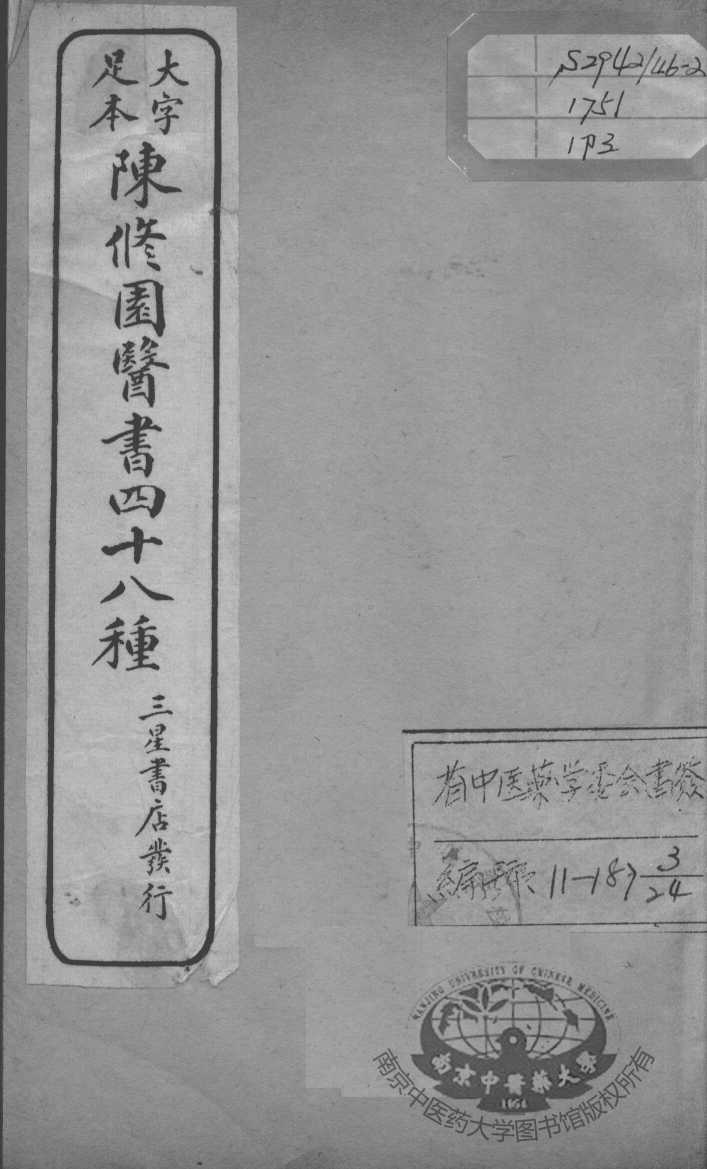 大字
足本
陳修園醫書四十八種
三星書店發行
S2942/46-2
1751
1P3
省中医药学委会書簽
編號 11-187 3/24
NANJING UNIVERSITY OF CHINESE MEDICINE
南京中醫藥大學
1954
南京中医药大学图书馆版权所有